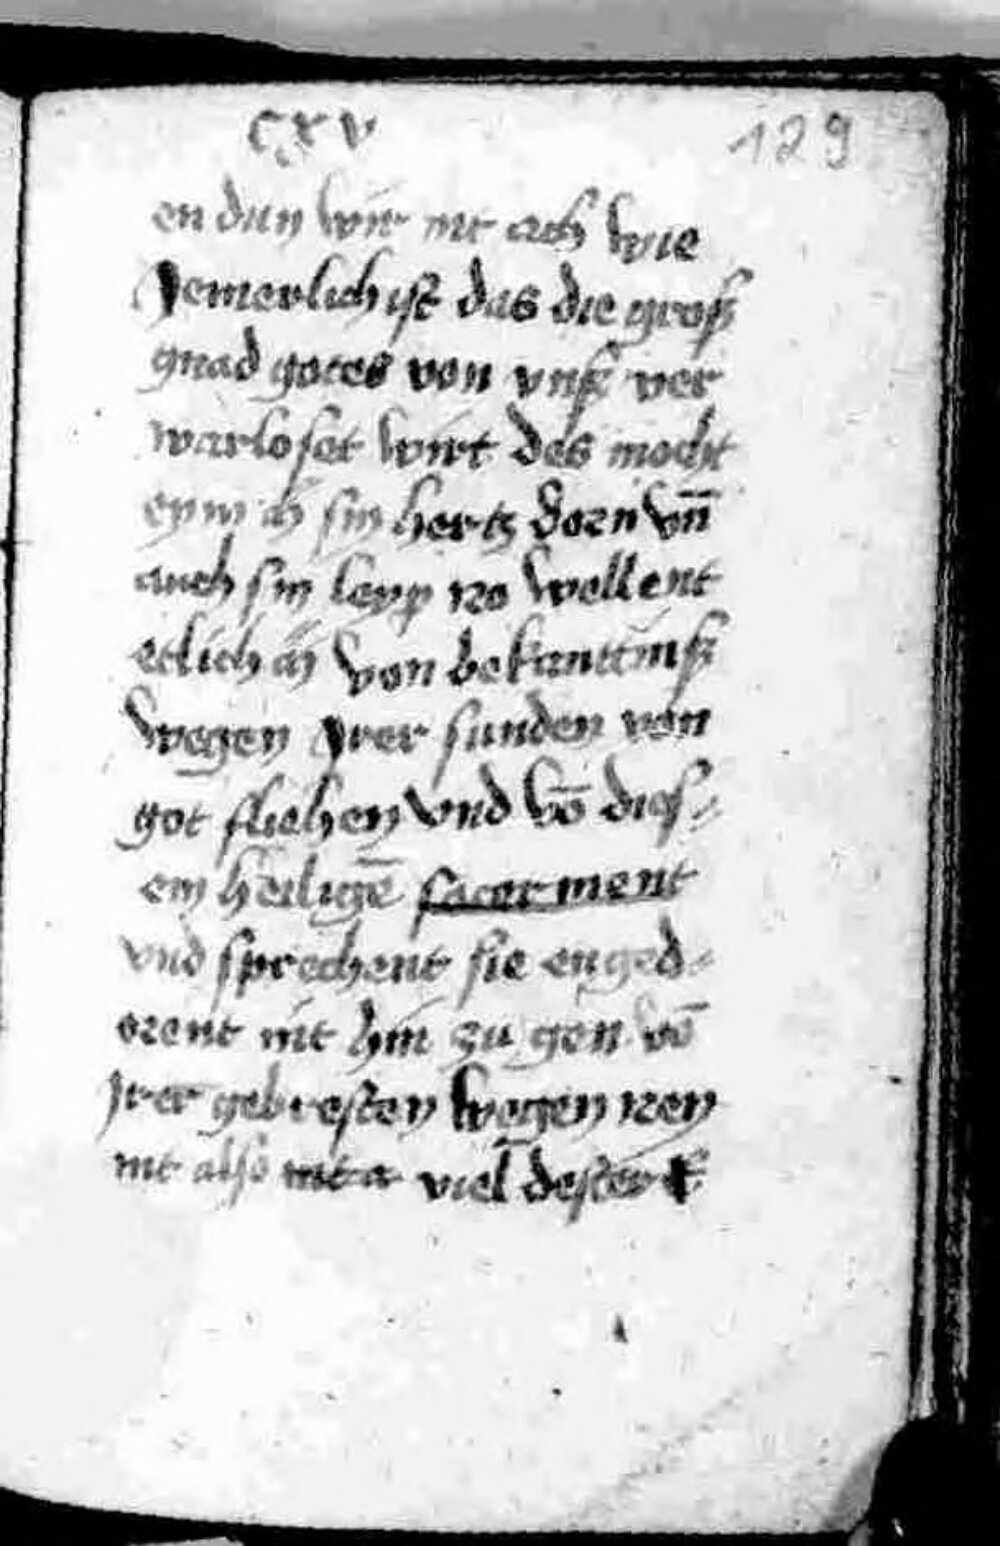 cxv 129
en dun wir nit ach wie
Jemerlich ist das die groß
gnad gotes von vnß ver
warloset wirt des mocht
eym sin hertz dorn vn̄
auch sin leyp no wellent
etlich von bekantnuß
wegen Jrer sunden von
got fliehen vnd vō dies⸗
em heiligē sacerment
vnd sprechent sie enged⸗
orent nit hin zu gen vō
Jrer gebresten wegen neyn
nit also viel dester